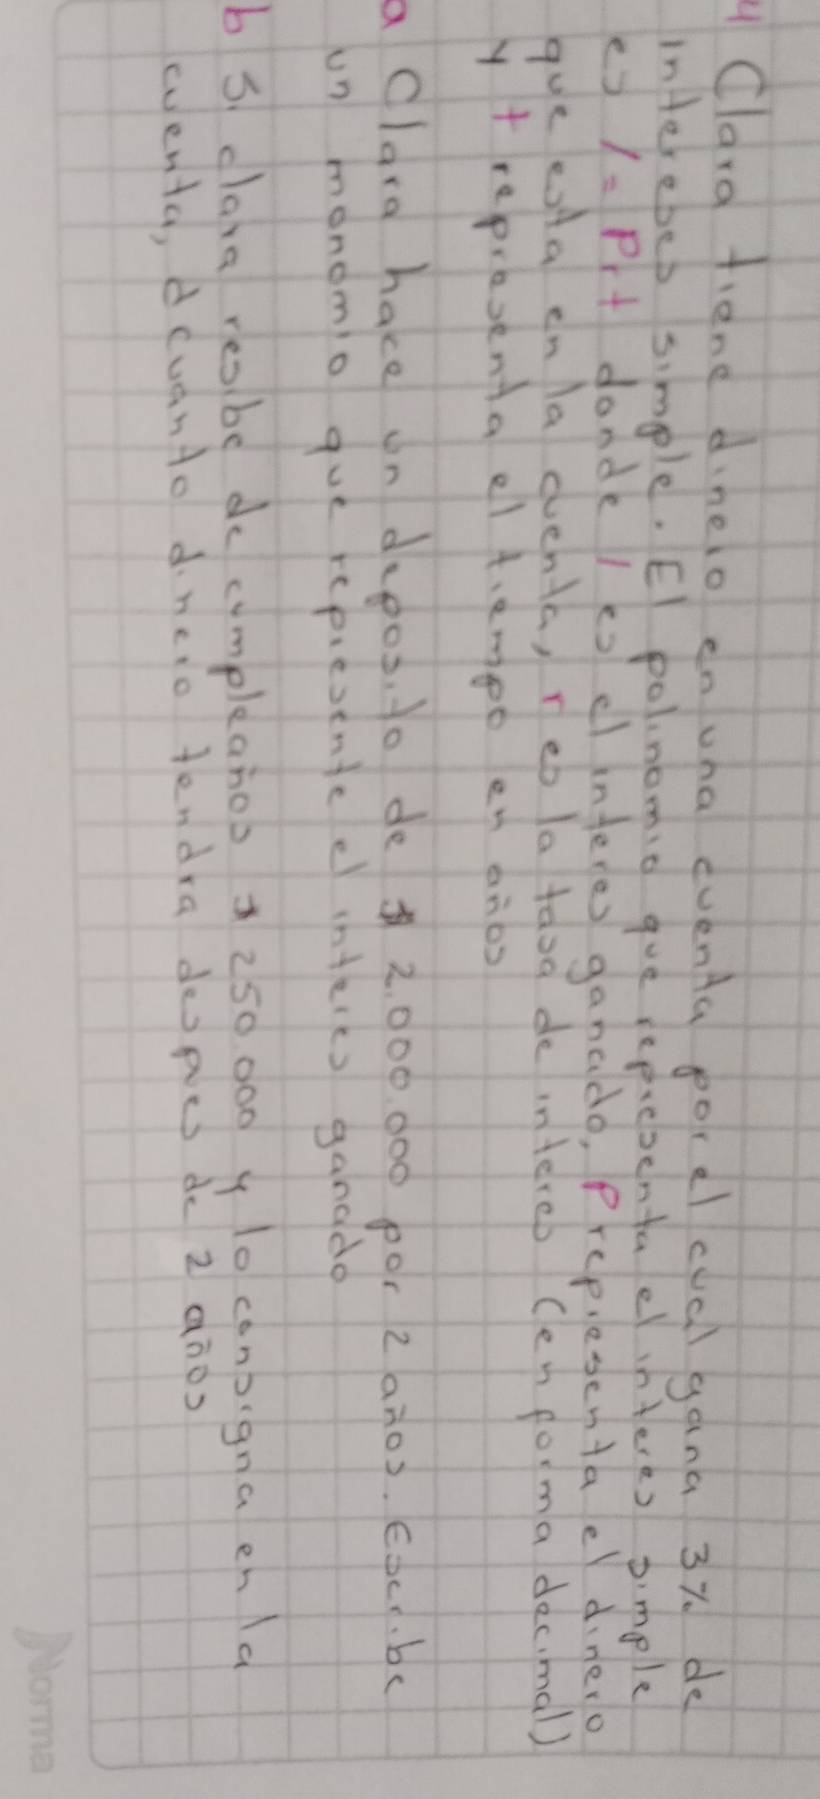 4 Clara tiene dinero en una cuenta por el cual gana 3% de
intereses simple. El polinomio que representa el interes simple
es I = Prt donde I es el interes ganado, P representa el dinero
que esta en la cuenta, r es la tasa de interes (en forma decimal)
y t representa el tiempo en años
a Clara hace un deposito de $ 2.000.000 por 2 años. Escribe
un monomio que represente el interes ganado
b Si clara resibe de cumpleaños $ 250.000 y lo consigna en la
cuenta, d cuanto dinero tendra despues de 2 años
Norma